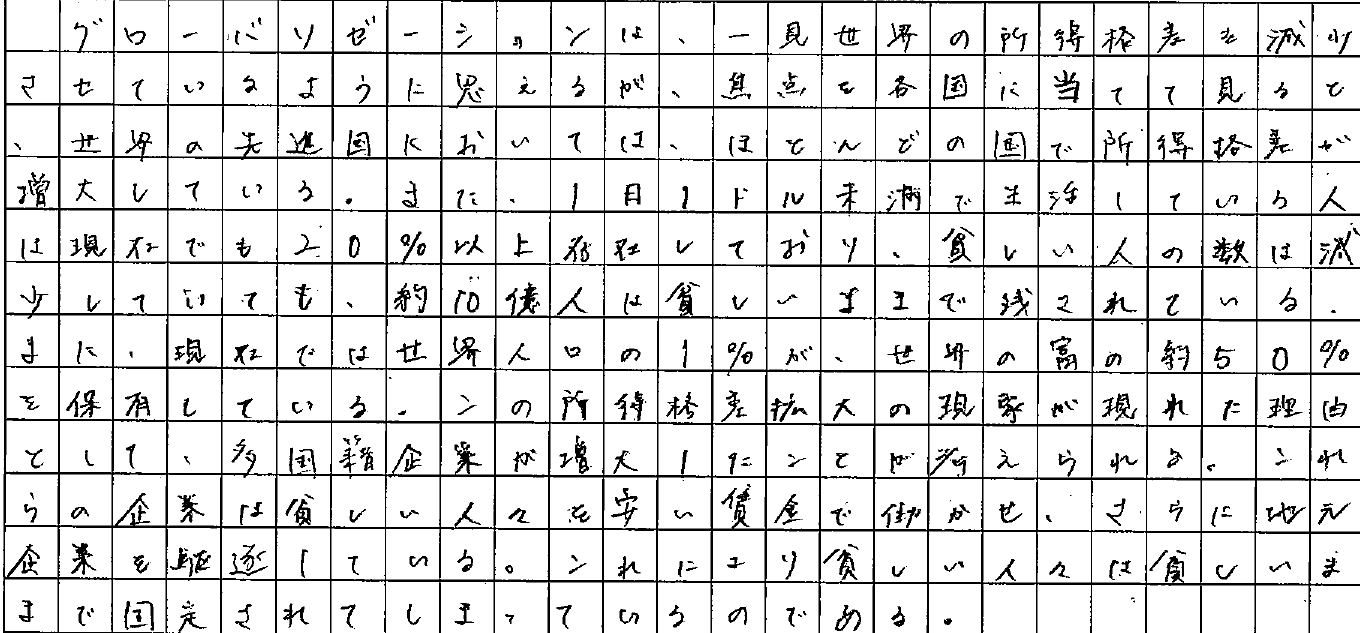 グローバリゼーションは、一見世界の所得格差を減少
させているように思えるが、焦点を各国に当てて見ると
、世界の先進国においては、ほとんどの国で所得格差が
増大している。また、1日1ドル未満で生活している人
は現在でも20%以上存在しており、貧しい人の数は減
少していても、約10億人は貧しいままで残されている。
また、現在では世界人口の1%が、世界の富の約50%
を保有している。この所得格差拡大の現象が現れた理由
として、多国籍企業が増大したことが考えられる。これ
らの企業は貧しい人々を安い賃金で働かせ、さらに地元
企業を駆逐している。これにより貧しい人々は貧しいま
まで固定されてしまっているのである。